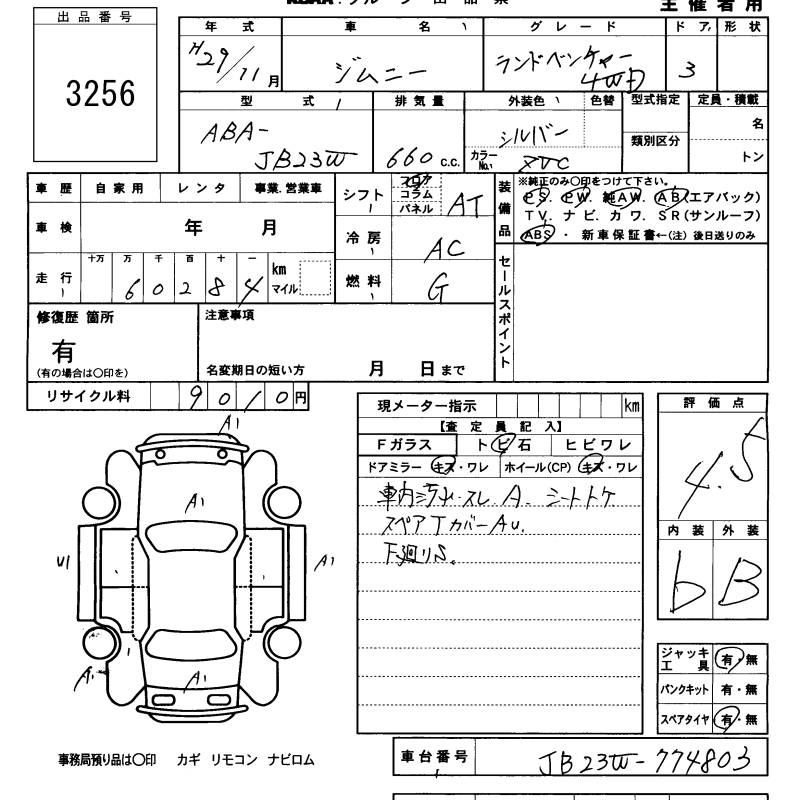 出品番号
3256
主催者用
年式 車名 グレード ドア 形状
H29/11月 ジムニー ランドベンチャー 4WD 3
型式 排気量 外装色 色替 型式指定 定員・積載
ABA-JB23W 660 c.c. シルバー カラーNo. 類別区分 名
トン
車歴 自家用 レンタ 事業.営業車
車検 年 月
走行 十万 万 千 百 十 一 km マイル
6 0 2 8 4
シフト フロア コラム パネル AT
冷房 AC
燃料 G
装備品
※純正のみ〇印をつけて下さい。
P.S. P.W. 純AW. AB(エアバック)
T V. ナビ. カワ. SR(サンルーフ)
ABS ・ 新車保証書←(注) 後日送りのみ
セールスポイント
修復歴 箇所
有
(有の場合は〇印を)
注意事項
名変期日の短い方 月 日まで
リサイクル料 9 0 1 0 円
現メーター指示 km
【査定員記入】
Fガラス トビ石 ヒビワレ
ドアミラー キズ・ワレ ホイール(CP) キズ・ワレ
車内汚れ・スレ A. シートトケ
スペアTカバーAU.
下廻りS.
評価点
4.5
内装 外装
b B
ジャッキ工具 有・無
パンクキット 有・無
スペアタイヤ 有・無
A1
A1
U1
A1
A1
A1
事務局預り品は〇印 カギ リモコン ナビロム
車台番号 JB23W-774803